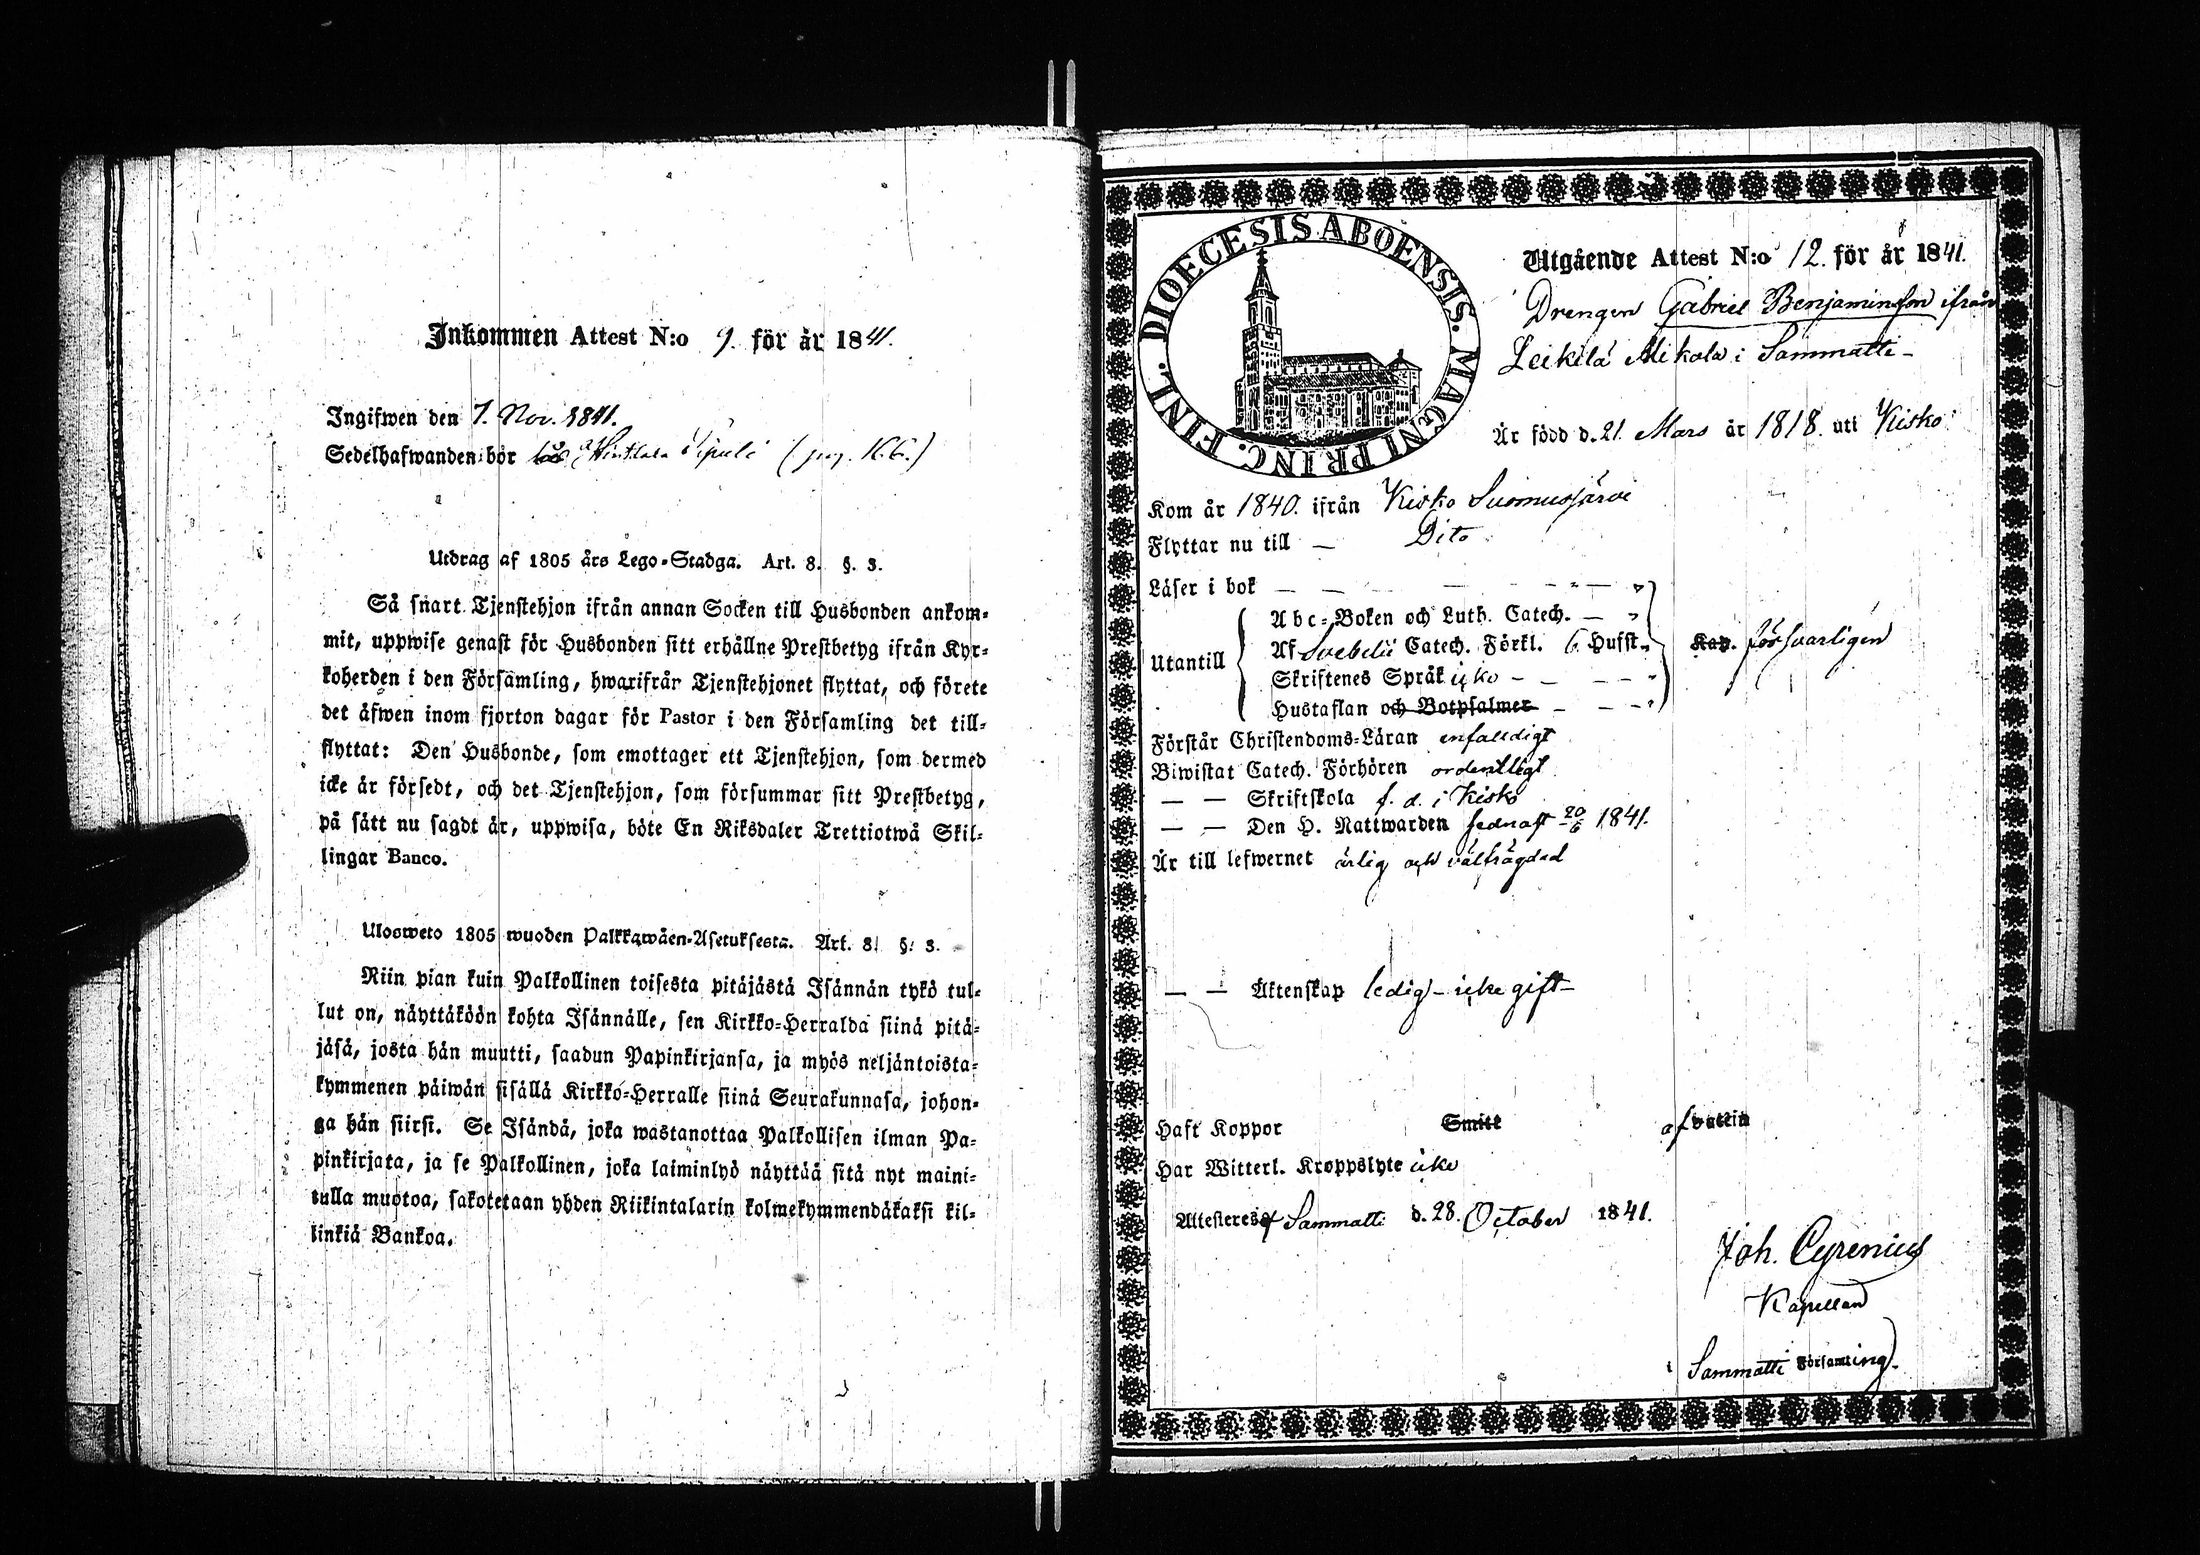 Inkommen Attest N:o 9. för år 1841.
Ingifwen den 7. Nov. 1841.
Sedelhafwanden bör
Utdrag af 1805 års Lego-Stadga. Art. 8. §. 3.
Så snart Tjenstehjon ifrån annan Socken till Husbonden ankom-
mit, uppwise genast för Husbonden sitt erhållne Prestbetyg ifrån Kyr-
koherden i den Församling, hwarifrår Tjenstehjonet flyttat, och förete
det äfwen inom fjorton dagar för Pastor i den Församling det till-
flyttat: Den Husbonde, som emottager ett Tjenstehjon, som dermed
icke är försedt, och det Tjenstehjon, som försummar sitt Prestbetyg,
på sätt nu sagdt är, uppwisa, böte En Riksdaler Trettiotwå Skil-
lingar Banco.
Ulosweto 1805 wuoden Palkkawäen-Asetuksesta. Art. 8. §. 3.
Niin pian kuin Palkollinen toisesta pitäjästä Isännän tykö tul-
lut on, näyttäköön kohta Isännälle, sen Kirkko-Herralda siinä pitä-
jäsä, josta hän muutti, saadun Papinkirjansa, ja myös neljäntoista-
kymmenen päiwän sisällä Kirkko-Herralle siinä Seurakunnasa, johon-
ga hän siirsi. Se Isändä, joka wastanottaa Palkollisen ilman Pa-
pinkirjata, ja se Palkollinen, joka laiminlyö näyttää sitä nyt maini-
tulla muotoa, sakotetaan yhden Riikintalarin kolmekymmendäkaksi kil-
linkiä Bankoa.
DIOECESIS ABOENSIS. MAGNI PRINC. FINL.
Utgående Attest N:o 12. för år 1841.
Drengen Gabriel Benjaminsson ifrån
Leikilä Mikola i Sammatti
Är född d. 21. Mars år 1818. uti Kisko
Kom år 1840. ifrån Kisko Suomusjärvi
Flyttar nu till — Dito
Läser i bok
Abc-Boken och Luth. Catech.
Utantill Af Svebelii Catech. Förkl. 6 Hufst. Kap. försvarligen
Skriftenes Språk icke
Hustaflan och Botpsalmer
Förstår Christendoms-Läran enfaldigt
Biwistat Catech. Förhören ordentligt
— — Skriftskola f. d. i Kisko
— — Den H. Nattwarden sednast 20/6 1841.
Är till lefwernet ärlig och välfrägdad
— — Äktenskap ledig – icke gift –
Haft Koppor Smitt af vattin
Har Witterl. Kroppslyte icke
Attesteres af Sammatti d. 28. October 1841.
Joh. Cyrenius
Kapellan
i Sammatti Församling.